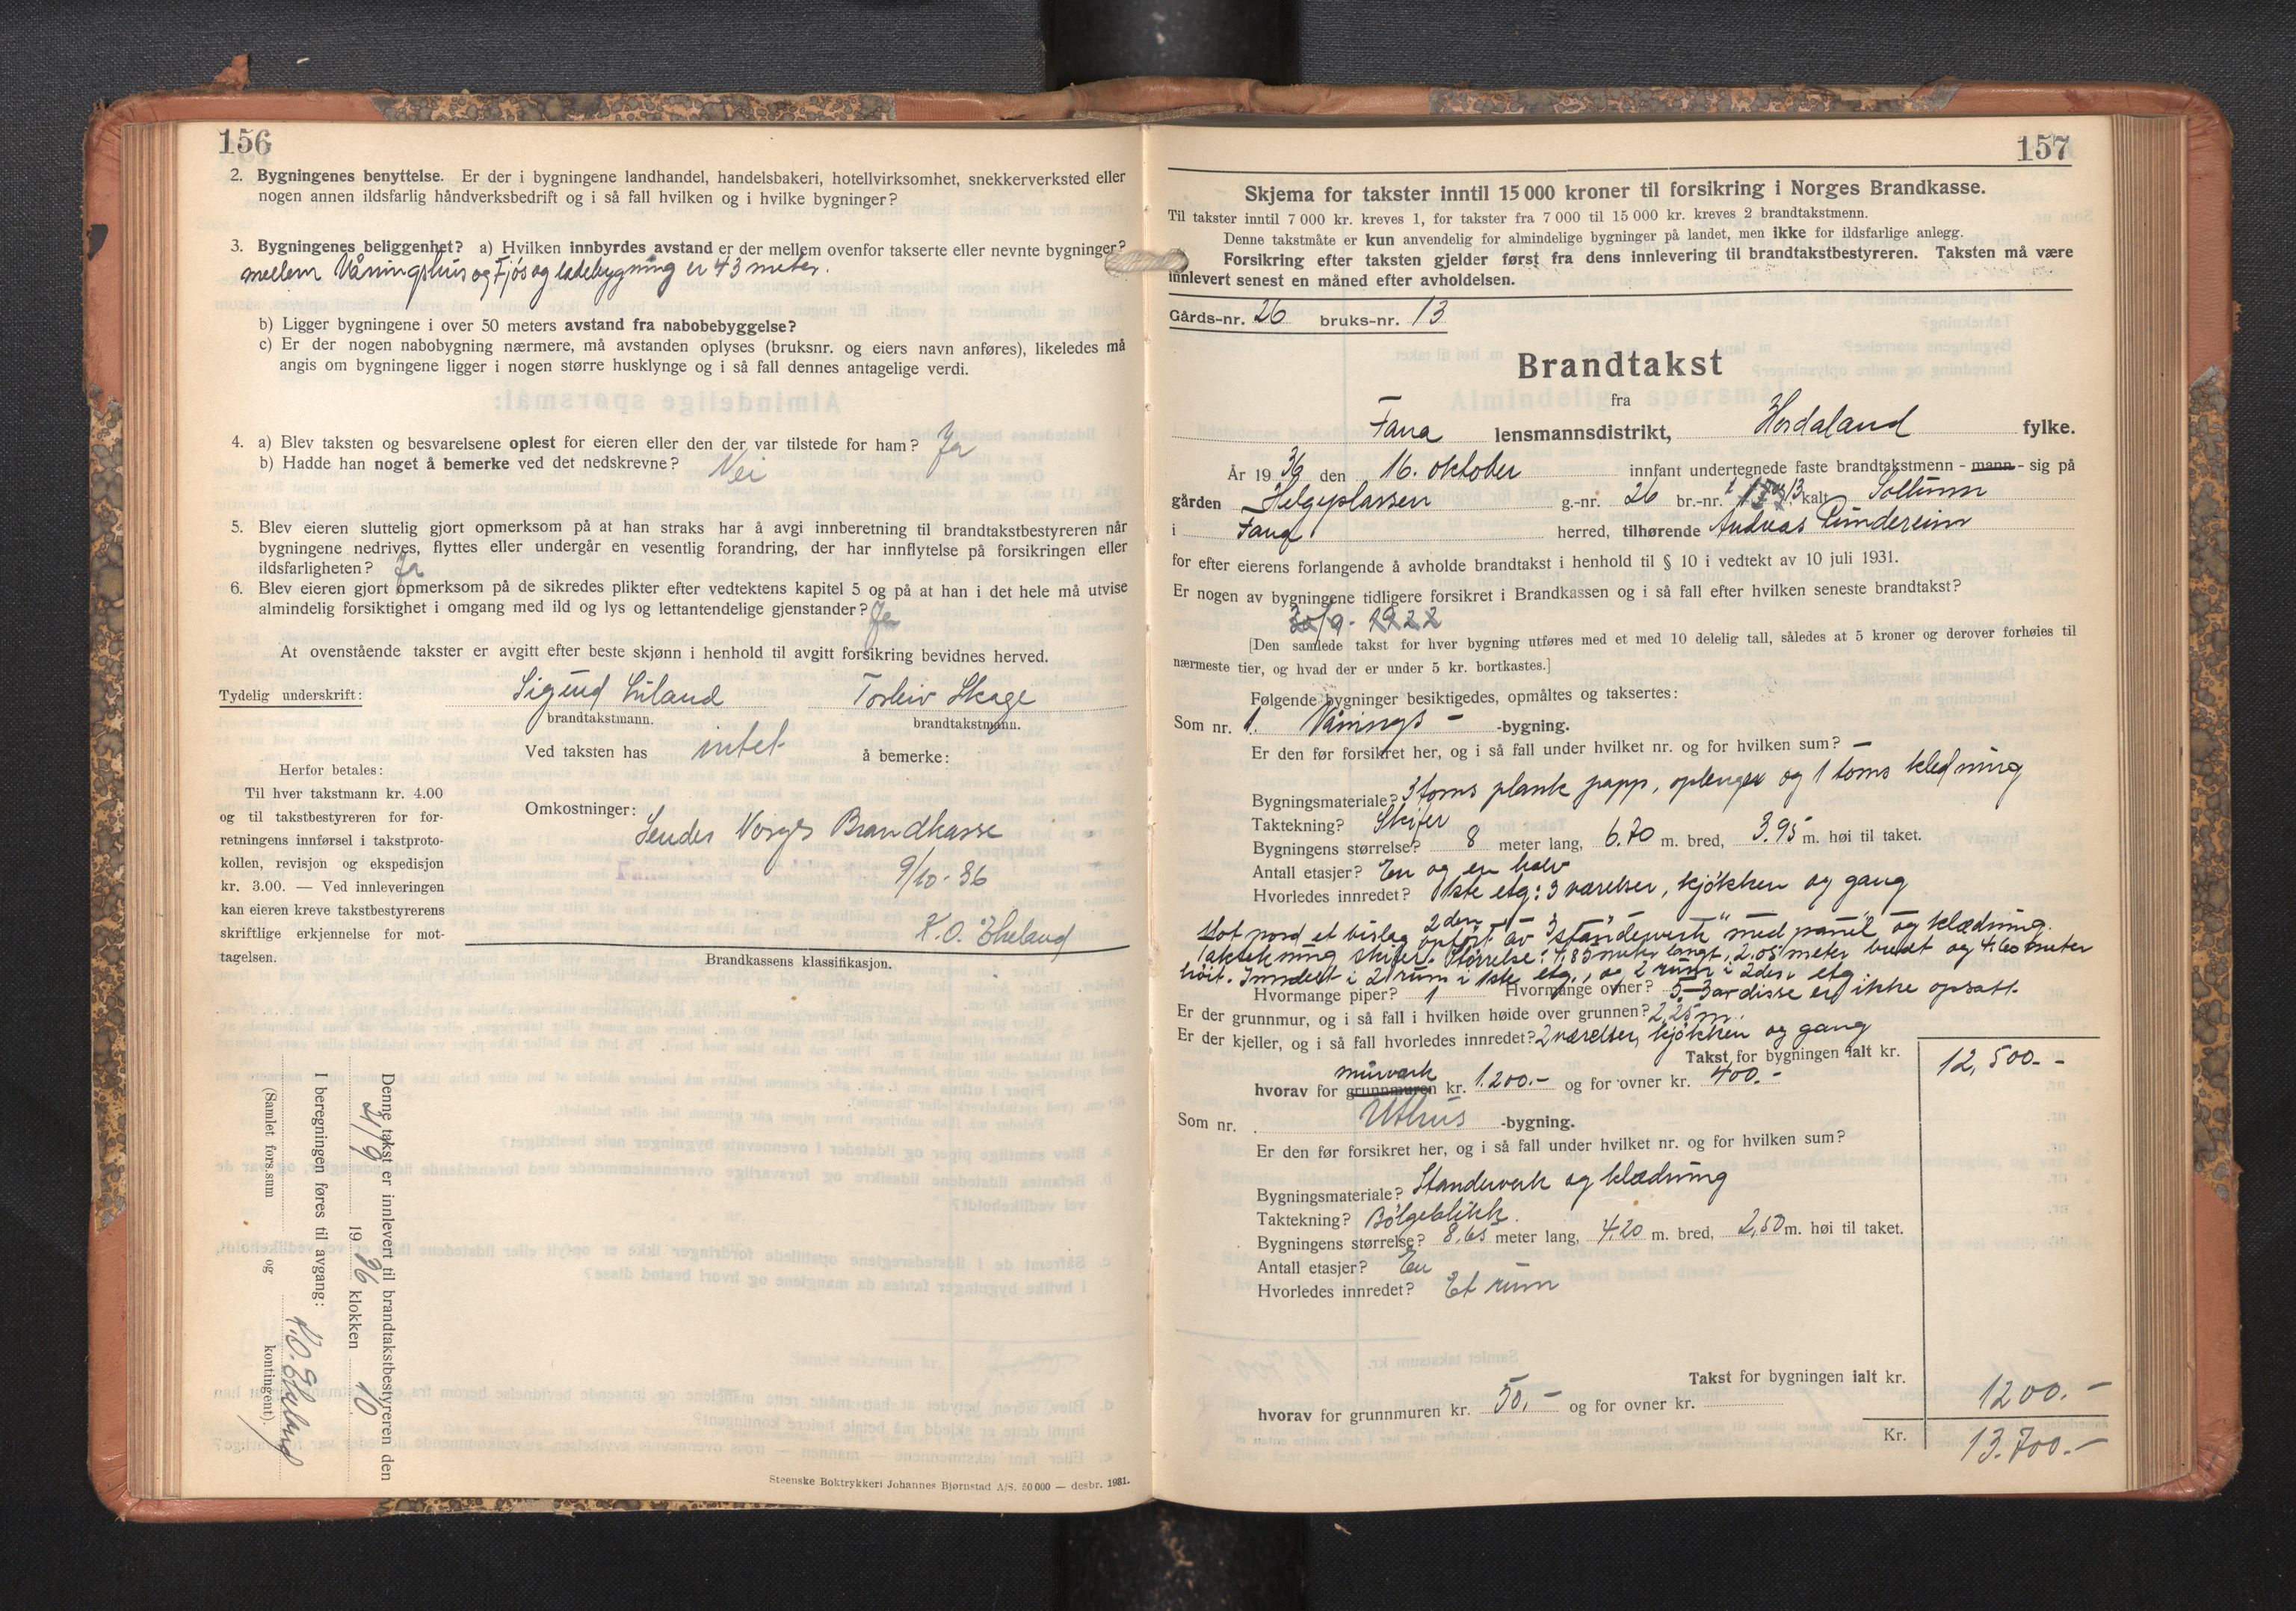 156
2. Bygningenes benyttelse. Er der i bygningene landhandel, handelsbakeri, hotellvirksomhet, snekkerverksted eller
nogen annen ildsfarlig håndverksbedrift og i så fall hvilken og i hvilke bygninger?
3. Bygningenes beliggenhet? a) Hvilken innbyrdes avstand er der mellem ovenfor takserte eller nevnte bygninger?
mellem Våningshus og Fjøs og ladebygning er 43 meter.
b) Ligger bygningene i over 50 meters avstand fra nabobebyggelse?
c) Er der nogen nabobygning nærmere, må avstanden oplyses (bruksnr. og eiers navn anføres), likeledes må
angis om bygningene ligger i nogen større husklynge og i så fall dennes antagelige verdi.
4. a) Blev taksten og besvarelsene oplest for eieren eller den der var tilstede for ham? Ja
b) Hadde han noget å bemerke ved det nedskrevne? Nei
5. Blev eieren sluttelig gjort opmerksom på at han straks har å avgi innberetning til brandtakstbestyreren når
bygningene nedrives, flyttes eller undergår en vesentlig forandring, der har innflytelse på forsikringen eller
ildsfarligheten? Ja
6. Blev eieren gjort opmerksom på de sikredes plikter efter vedtektens kapitel 5 og på at han i det hele må utvise
almindelig forsiktighet i omgang med ild og lys og lettantendelige gjenstander? Ja
At ovenstående takster er avgitt efter beste skjønn i henhold til avgitt forsikring bevidnes herved.
Tydelig underskrift: Sigurd Liland Torleiv Skage
brandtakstmann. brandtakstmann.
Ved taksten has intet å bemerke:
Herfor betales:
Til hver takstmann kr. 4.00
og til takstbestyreren for for-
retningens innførsel i takstproto-
kollen, revisjon og ekspedisjon
kr. 3.00. — Ved innleveringen
kan eieren kreve takstbestyrerens
skriftlige erkjennelse for mot-
tagelsen.
Omkostninger:
Sendes Norges Brandkasse
9/10-36
K. O. Ekeland
Brandkassens klassifikasjon.
Denne takst er innlevert til brandtakstbestyreren den
21/9 1936 klokken 10
I beregningen føres til avgang: K. O. Ekeland
(Samlet fors.sum og kontingent).
Steenske Boktrykkeri Johannes Bjørnstad A/S. 50 000 — desbr. 1931.
157
Skjema for takster inntil 15 000 kroner til forsikring i Norges Brandkasse.
Til takster inntil 7 000 kr. kreves 1, for takster fra 7 000 til 15 000 kr. kreves 2 brandtakstmenn.
Denne takstmåte er kun anvendelig for almindelige bygninger på landet, men ikke for ildsfarlige anlegg.
Forsikring efter taksten gjelder først fra dens innlevering til brandtakstbestyreren. Taksten må være
innlevert senest en måned efter avholdelsen.
Gårds-nr. 26 bruks-nr. 13
Brandtakst
fra
Fana lensmannsdistrikt, Hordaland fylke.
År 1936 den 16. oktober innfant undertegnede faste brandtakstmenn - mann - sig på
gården Helgeplassen g.-nr. 26 br.-nr. 13 kalt Soltun
i Fana herred, tilhørende Andreas Rundereim
for efter eierens forlangende å avholde brandtakst i henhold til § 10 i vedtekt av 10 juli 1931.
Er nogen av bygningene tidligere forsikret i Brandkassen og i så fall efter hvilken seneste brandtakst?
30/9-1922
[Den samlede takst for hver bygning utføres med et med 10 delelig tall, således at 5 kroner og derover forhøies til
nærmeste tier, og hvad der er under 5 kr. bortkastes.]
Følgende bygninger besiktigedes, opmåltes og taksertes:
Som nr. 1. Vånings- -bygning.
Er den før forsikret her, og i så fall under hvilket nr. og for hvilken sum? —
Bygningsmateriale? 3 toms plank papp, oplenger og 1 toms kledning
Taktekning? Skifer
Bygningens størrelse? 8 meter lang, 6.70 m. bred, 3.95 m. høi til taket.
Antall etasjer? En og en halv
Hvorledes innredet? 1ste etg: 3 værelser, kjøkken og gang
2den -"- 3 -"- -"-
Mot nord et bislag opført av standerverk med panel og klædning.
Taktekning skifer. Størrelse: 4,85 meter langt, 2.05 meter bredt og 4.60 meter
høit. Inndelt i 2 rum i 1ste etg., og 2 rum i 2den etg.
Hvormange piper? 1 Hvormange ovner? 5. 3 av disse er ikke opsatt.
Er der grunnmur, og i så fall i hvilken høide over grunnen? 2,25 m.
Er der kjeller, og i så fall hvorledes innredet? 2 værelser, kjøkken og gang
Takst for bygningen ialt kr. 12,500.-
murverk
hvorav for grunnmuren kr. 1.200.- og for ovner kr. 400.-
Som nr. Uthus -bygning.
Er den før forsikret her, og i så fall under hvilket nr. og for hvilken sum?
Bygningsmateriale? Standerverk og klædning
Taktekning? Bølgeblikk.
Bygningens størrelse? 8,65 meter lang, 4,20 m. bred, 2,50 m. høi til taket.
Antall etasjer? En
Hvorledes innredet? Et rum
Takst for bygningen ialt kr. 1200.-
hvorav for grunnmuren kr. 50,- og for ovner kr.
Kr. 13.700.-